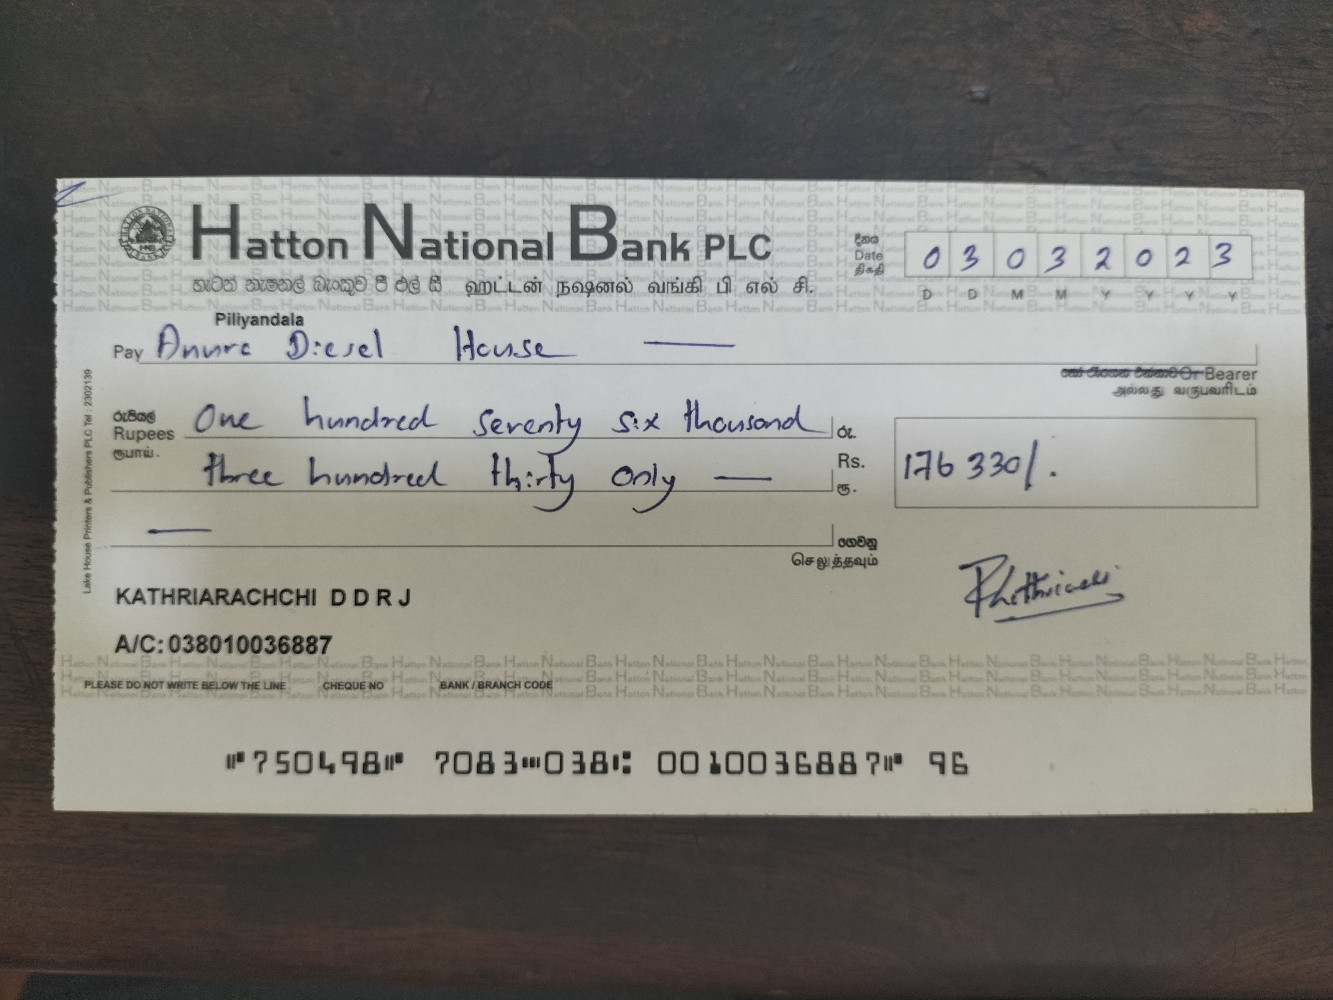 Hatton National Bank PLC
හැටන් නැෂනල් බැංකුව පී එල් සී ஹட்டன் நஷனல் வங்கி பி எல் சி.
දිනය
Date
திகதி
0 3 0 3 2 0 2 3
D D M M Y Y Y Y
Piliyandala
Pay Anura Diesel House
Or Bearer
அல்லது வருபவரிடம்
රුපියල්
Rupees
ரூபாய்.
One hundred seventy six thousand
three hundred thirty only
රු.
Rs.
ரூ.
176 330/.
ගෙවනු
செலுத்தவும்
KATHRIARACHCHI D D R J
A/C: 038010036887
PLEASE DO NOT WRITE BELOW THE LINE CHEQUE NO BANK / BRANCH CODE
⑈750498⑈ 7083⑉038⑆ 0010036887⑈ 96
Lake House Printers & Publishers PLC Tel : 2302139